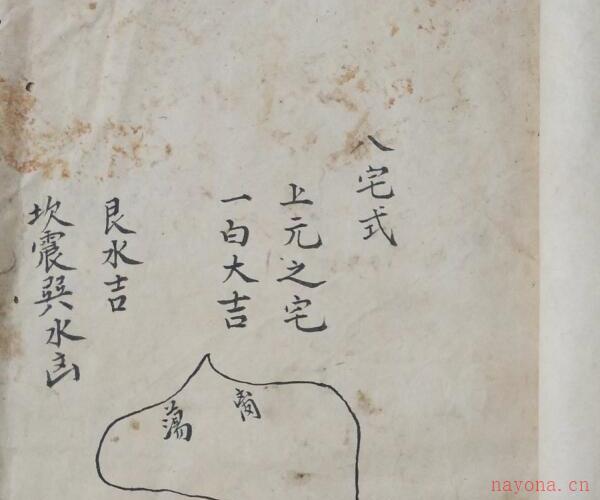 八宅式
上元之宅
一白大吉
艮水吉
坎震巽水凶
蕩
nayona.cn